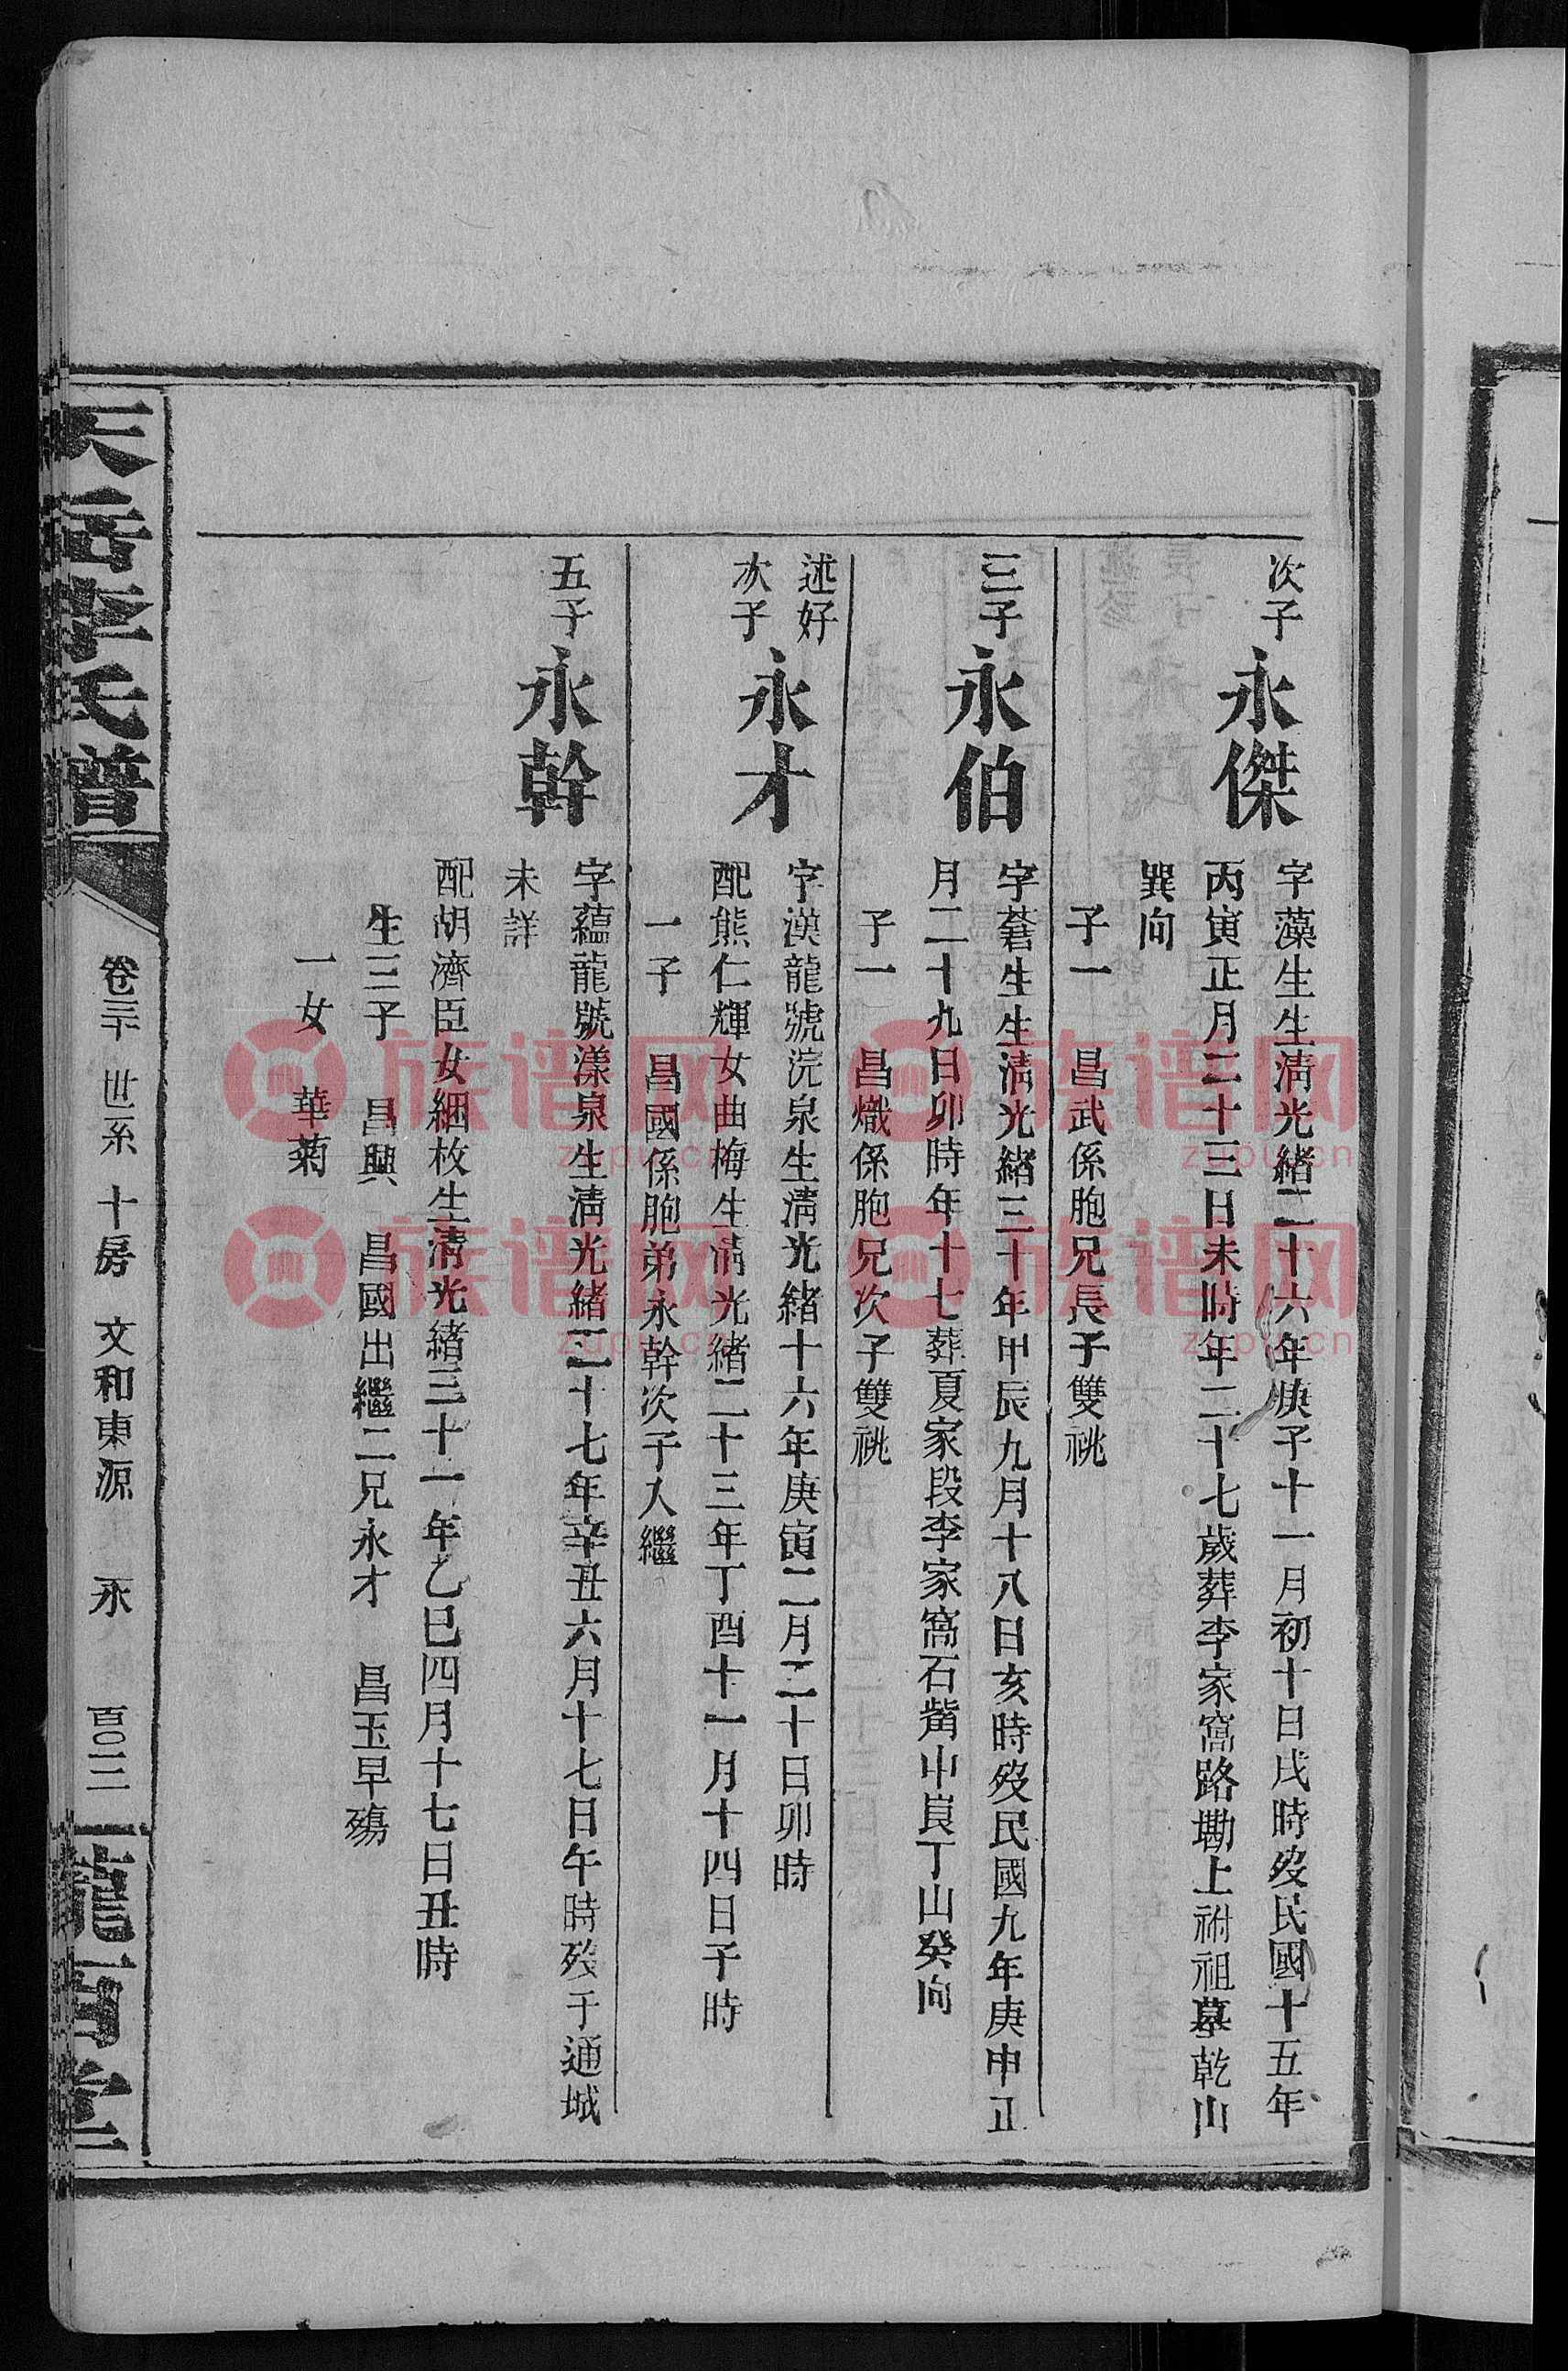 次子
永傑
字藻生生清光緒二十六年庚子十一月初十日戌時歿民國十五年
丙寅正月二十三日未時年二十七歲葬李家窩路墈上祔祖墓乾山
巽向
子一 昌武係胞兄長子雙祧
三子
永伯
字蒼生生清光緒三十年甲辰九月十八日亥時歿民國九年庚申正
月二十九日卯時年十七葬夏家段李家窩石嘴中崀丁山癸向
子一 昌熾係胞兄次子雙祧
述好
次子
永才
字漢龍號浣泉生清光緒十六年庚寅二月二十日卯時
配熊仁輝女曲梅生清光緒二十三年丁酉十一月十四日子時
一子 昌國係胞弟永幹次子入繼
五子
永幹
字蘊龍號漾泉生清光緒二十七年辛丑六月十七日午時歿于通城
未詳
配胡濟臣女細枚生清光緒三十一年乙巳四月十七日丑時
生三子 昌興 昌國出繼二兄永才 昌玉早殤
一女 華菊
天岳李氏譜
卷三下 世系 十房 文和東源 永 百〇二
龍門堂
族谱网
zupu.cn
族谱网
zupu.cn
族谱网
zupu.cn
族谱网
zupu.cn